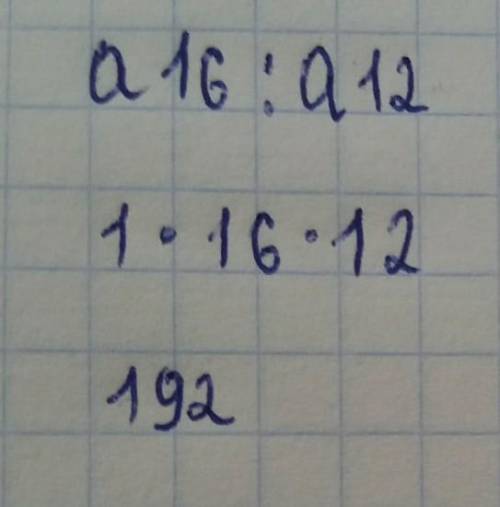 a 16 : a 12
1 · 16 · 12
192